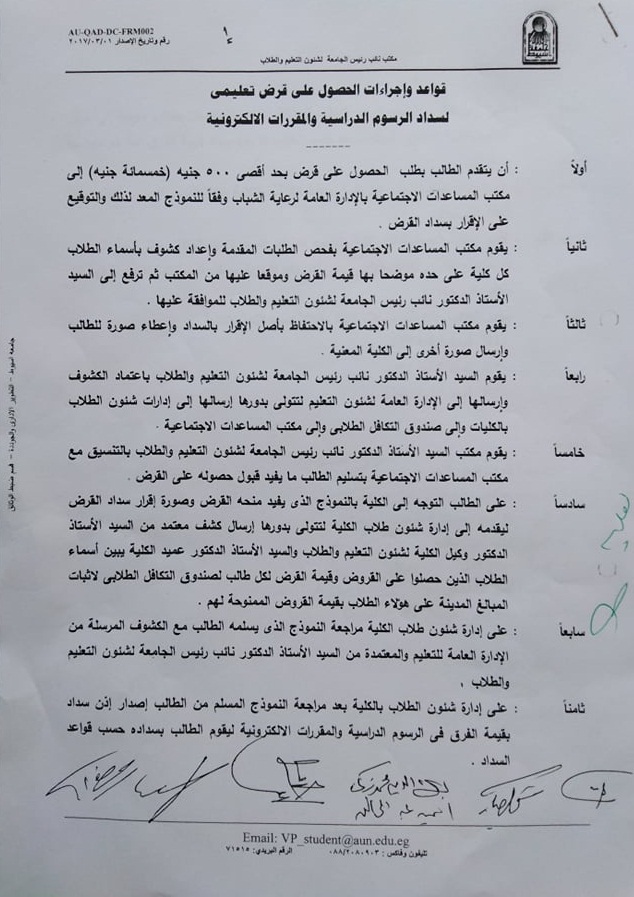 AU-QAD-DC-FRM002
رقم وتاريخ الإصدار ٢٠١٧/٠٣/٠١
مكتب نائب رئيس الجامعة لشئون التعليم والطلاب
قواعد وإجراءات الحصول على قرض تعليمى
لسداد الرسوم الدراسية والمقررات الالكترونية
أولاً : أن يتقدم الطالب بطلب الحصول على قرض بحد أقصى ٥٠٠ جنيه (خمسمائة جنيه) إلى
مكتب المساعدات الاجتماعية بالإدارة العامة لرعاية الشباب وفقاً للنموذج المعد لذلك والتوقيع
على الإقرار بسداد القرض .
ثانياً : يقوم مكتب المساعدات الاجتماعية بفحص الطلبات المقدمة وإعداد كشوف بأسماء الطلاب
كل كلية على حده موضحا بها قيمة القرض وموقعا عليها من المكتب ثم ترفع إلى السيد
الأستاذ الدكتور نائب رئيس الجامعة لشئون التعليم والطلاب للموافقة عليها .
ثالثاً : يقوم مكتب المساعدات الاجتماعية بالاحتفاظ بأصل الإقرار بالسداد وإعطاء صورة للطالب
وإرسال صورة أخرى إلى الكلية المعنية .
رابعاً : يقوم السيد الأستاذ الدكتور نائب رئيس الجامعة لشئون التعليم والطلاب باعتماد الكشوف
وإرسالها إلى الإدارة العامة لشئون التعليم لتتولى بدورها إرسالها إلى إدارات شئون الطلاب
بالكليات وإلى صندوق التكافل الطلابى وإلى مكتب المساعدات الاجتماعية .
خامساً : يقوم مكتب السيد الأستاذ الدكتور نائب رئيس الجامعة لشئون التعليم والطلاب بالتنسيق مع
مكتب المساعدات الاجتماعية بتسليم الطالب ما يفيد قبول حصوله على القرض .
سادساً : على الطالب التوجه إلى الكلية بالنموذج الذى يفيد منحه القرض وصورة إقرار سداد القرض
ليقدمه إلى إدارة شئون طلاب الكلية لتتولى بدورها إرسال كشف معتمد من السيد الأستاذ
الدكتور وكيل الكلية لشئون التعليم والطلاب والسيد الأستاذ الدكتور عميد الكلية يبين أسماء
الطلاب الذين حصلوا على القروض وقيمة القرض لكل طالب لصندوق التكافل الطلابى لاثبات
المبالغ المدينة على هؤلاء الطلاب بقيمة القروض الممنوحة لهم .
سابعاً : على إدارة شئون طلاب الكلية مراجعة النموذج الذى يسلمه الطالب مع الكشوف المرسلة من
الإدارة العامة للتعليم والمعتمدة من السيد الأستاذ الدكتور نائب رئيس الجامعة لشئون التعليم
والطلاب .
ثامناً : على إدارة شئون الطلاب بالكلية بعد مراجعة النموذج المسلم من الطالب إصدار إذن سداد
بقيمة الفرق فى الرسوم الدراسية والمقررات الالكترونية ليقوم الطالب بسداده حسب قواعد
السداد .
Email: VP_student@aun.edu.eg
تليفون وفاكس : ٠٨٨/٢٠٨٠٩٠٣ الرقم البريدي: ٧١٥١٥
جامعة أسيوط – التطوير الإدارى والجودة – قسم ضبط الوثائق